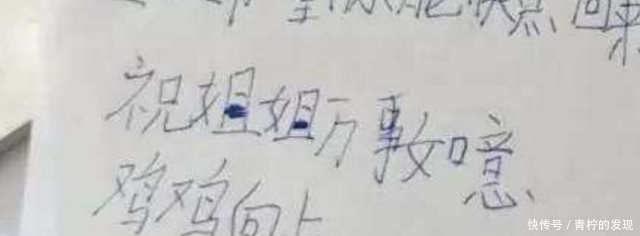 望你能快点回来
祝姐姐万事如意
鸡鸡向上
快传号／青柠的发现